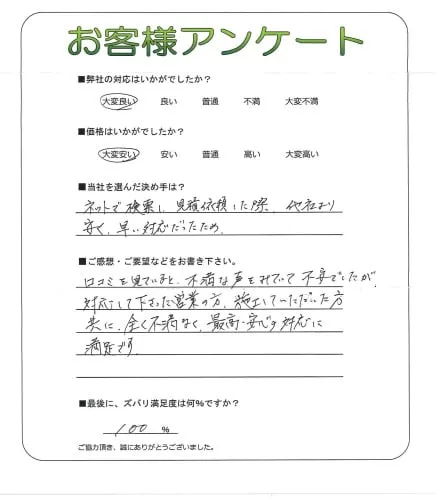 お客様アンケート
■弊社の対応はいかがでしたか？
大変良い 良い 普通 不満 大変不満
■価格はいかがでしたか？
大変安い 安い 普通 高い 大変高い
■当社を選んだ決め手は？
ネットで検索し、見積依頼した際、他社より
安く、早い対応だったため。
■ご感想・ご要望などをお書き下さい。
口コミを見ていると、不満な声をみていて不安でしたが、
対応して下さった営業の方、施工していただいた方
共に、全く不満なく、最高・安心な対応に
満足です。
■最後に、ズバリ満足度は何％ですか？
100 ％
ご協力頂き、誠にありがとうございました。